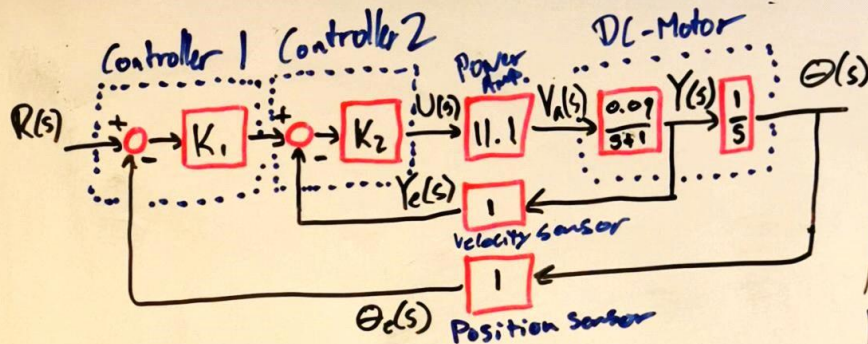 Controller 1
Controller 2
Power
Amp.
DC-Motor
R(s)
+
-
K₁
+
-
K₂
U(s)
11.1
Va(s)
0.09
s+1
Y(s)
1
s
Θ(s)
Ye(s)
1
Velocity sensor
1
Θe(s)
Position sensor